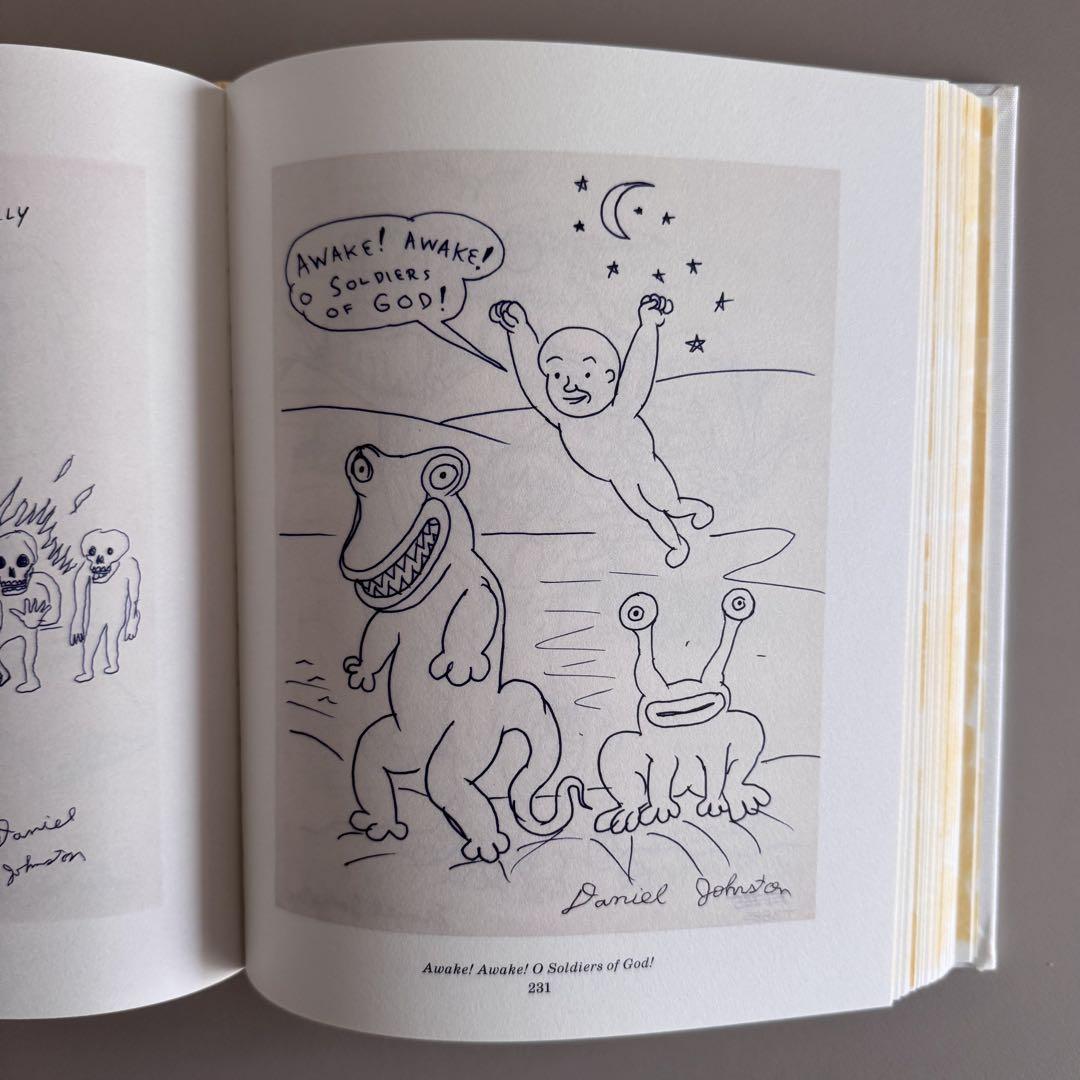 LLY
Daniel
Johnston
AWAKE! AWAKE!
O SOLDIERS
OF GOD!
Daniel Johnston
Awake! Awake! O Soldiers of God!
231